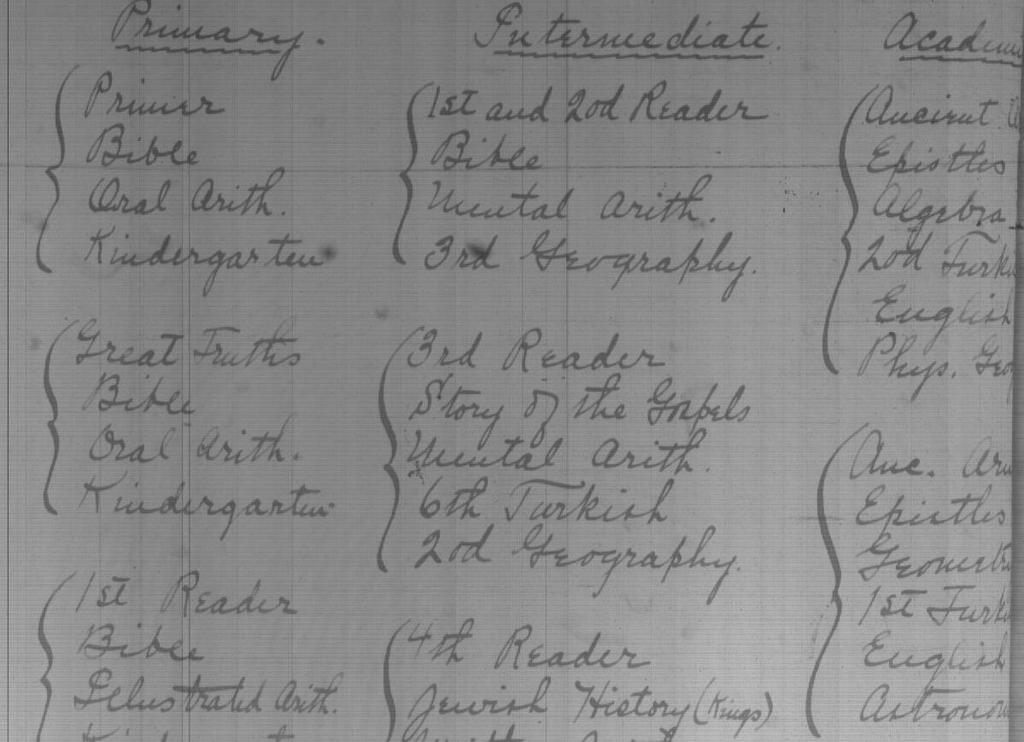 Primary.
Primer
Bible
Oral Arith.
Kindergarten
Great Truths
Bible
Oral Arith.
Kindergarten
1st Reader
Bible
Illustrated Arith.
Intermediate.
1st and 2od Reader
Bible
Mental Arith.
3rd Geography.
3rd Reader
Story of the Gospels
Mental Arith.
6th Turkish
2od Geography.
4th Reader
Jewish History (Kings)
Ancient
Epistles
Algebra
2od
English
Phys.
Anc.
Epistles
1st
English